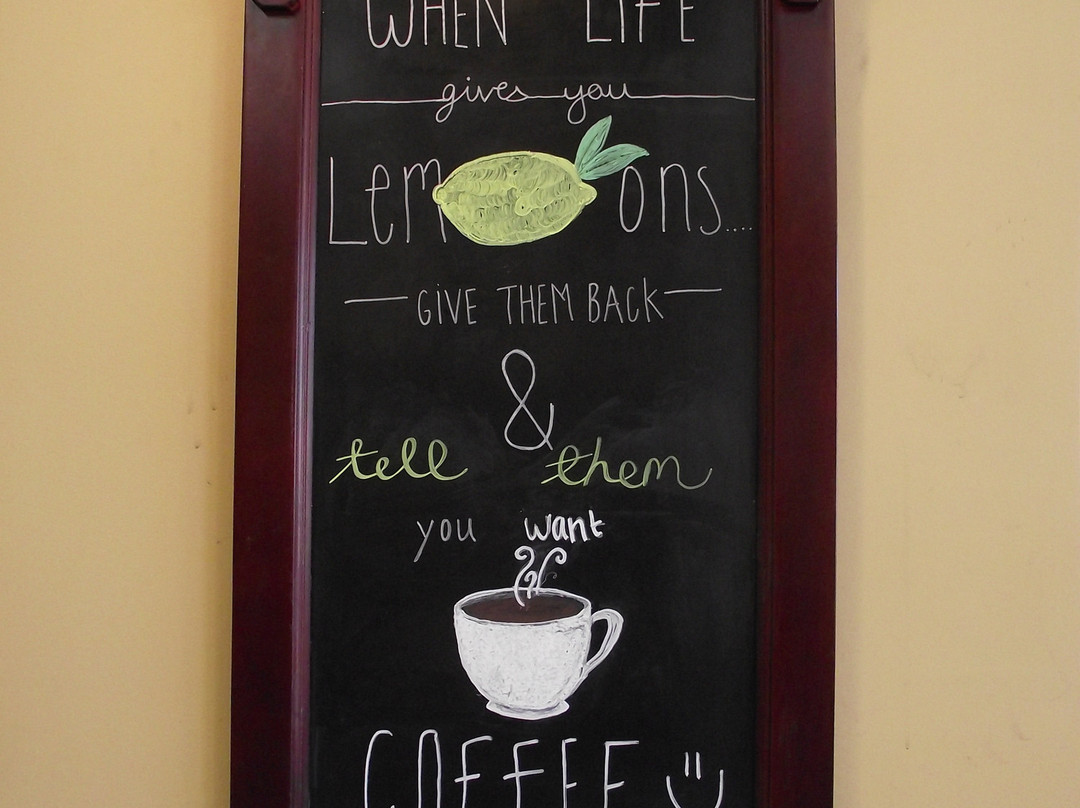 WHEN LIFE
gives you
Lemons....
GIVE THEM BACK
&
tell them
you want
COFFEE